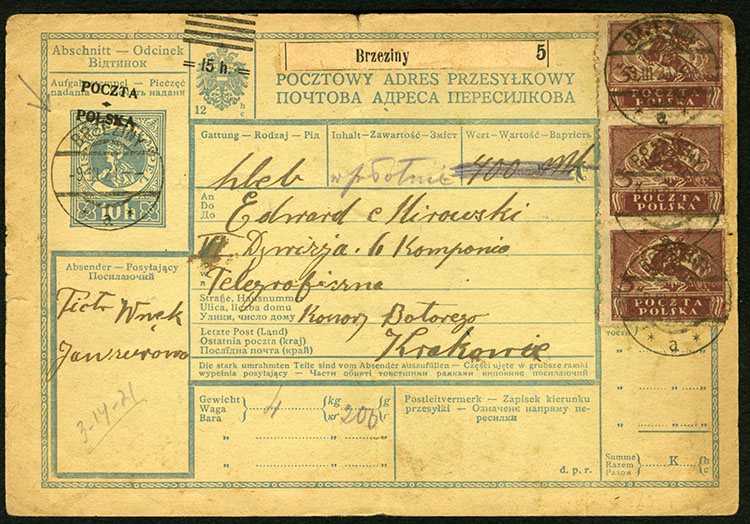 Abschnitt — Odcinek
Відтинок
Aufgabestempel — Pieczęć
nadania
POCZTA
POLSKA
BRZEZINY
10 h
15 h.
12
h
c
Brzeziny 5
POCZTOWY ADRES PRZESYŁKOWY
ПОЧТОВА АДРЕСА ПЕРЕСИЛКОВА
Gattung — Rodzaj — Рід
Inhalt — Zawartość — Зміст
Wert — Wartość — Вартість
chleb
w płótnie
400 Mk
An
Do
До
Edward Mirowski
VI. Dywizja. 6 Kompania
Telegraficzna
Straße, Hausnummer
Ulica, liczba domu
Улиця, число дому
Koszary Batorego
Letzte Post (Land)
Ostatnia poczta (kraj)
Послїдна почта (край)
Krakowie
Absender — Posyłający
Посилаючий
Piotr Wnęk
3-14-21
Die stark umrahmten Teile sind vom Absender auszufüllen — Części ujęte w grubsze ramki
wypełnia posyłający — Части обняті товстшими рамками виповняє посилаючий
Gewicht
Waga
Вага
4
kg
кг
200
g
г
Postleitvermerk — Zapisek kierunku
przesyłki — Означенє напряму пе-
ресилки
d. p. r.
Summe
Razem
Разом
K
h
c
BRZEZINY
a
POCZTA
POLSKA
POCZTA
POLSKA
POCZTA
POLSKA
a